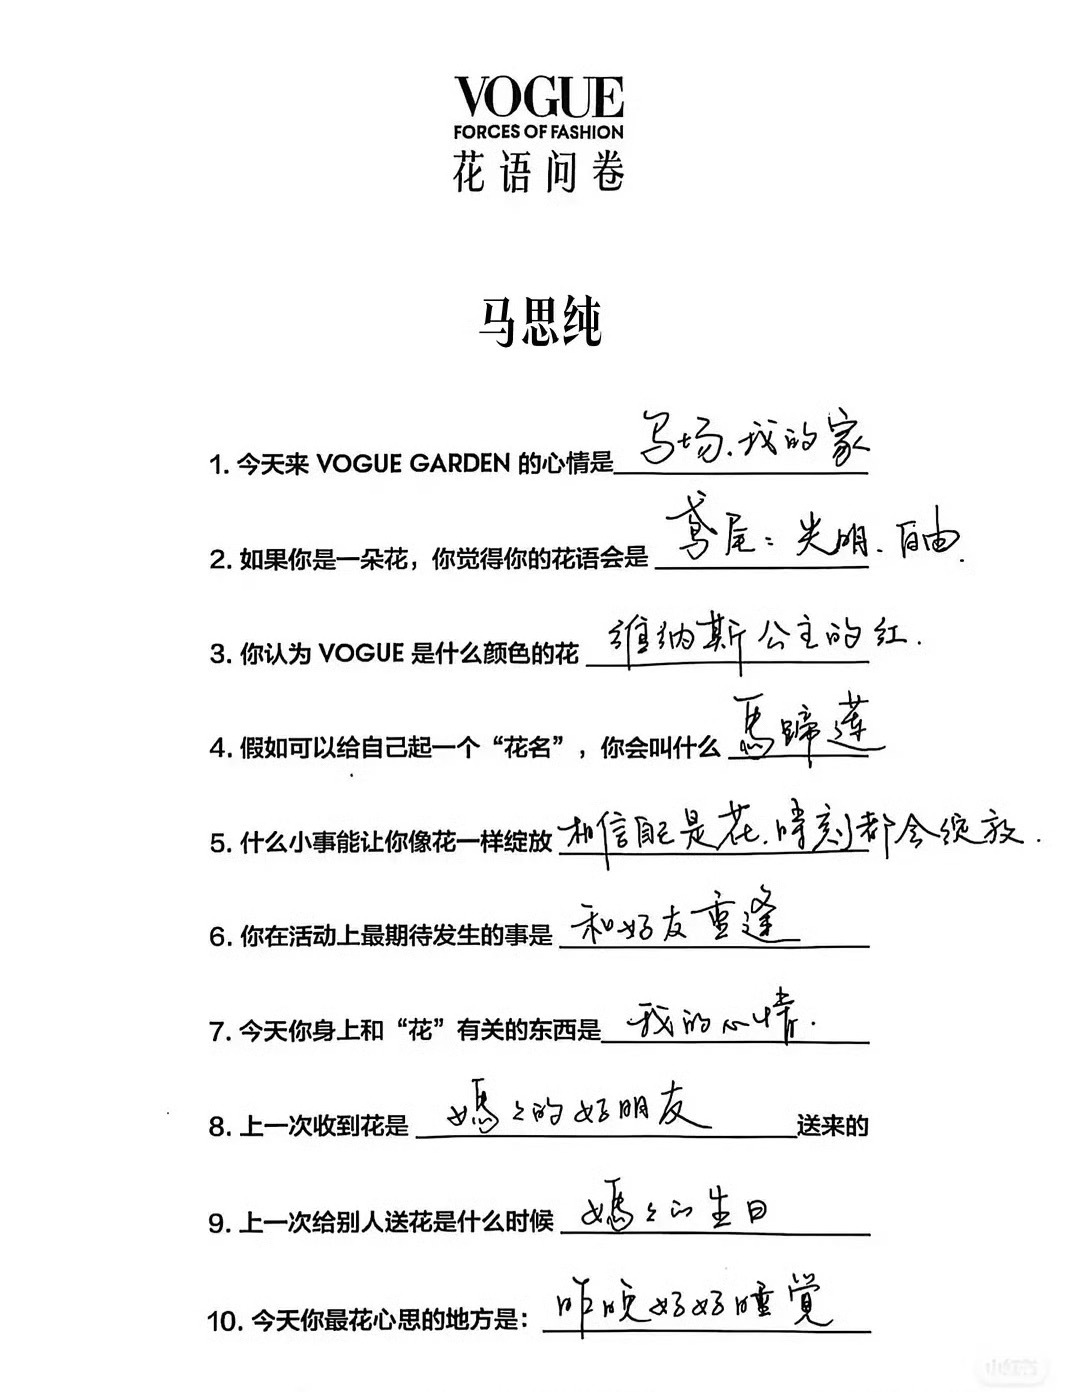 VOGUE
FORCES OF FASHION
花语问卷
马思纯
1. 今天来 VOGUE GARDEN 的心情是 马场、我的家
2. 如果你是一朵花，你觉得你的花语会是 鸢尾：光明、自由.
3. 你认为 VOGUE 是什么颜色的花 維纳斯公主的红.
4. 假如可以给自己起一个“花名”，你会叫什么 馬蹄莲
5. 什么小事能让你像花一样绽放 相信自己是花，時刻都会绽放.
6. 你在活动上最期待发生的事是 和好友重逢
7. 今天你身上和“花”有关的东西是 我的心情.
8. 上一次收到花是 媽々的好朋友 送来的
9. 上一次给别人送花是什么时候 媽々的生日
10. 今天你最花心思的地方是： 昨晚好好睡覺
小红书